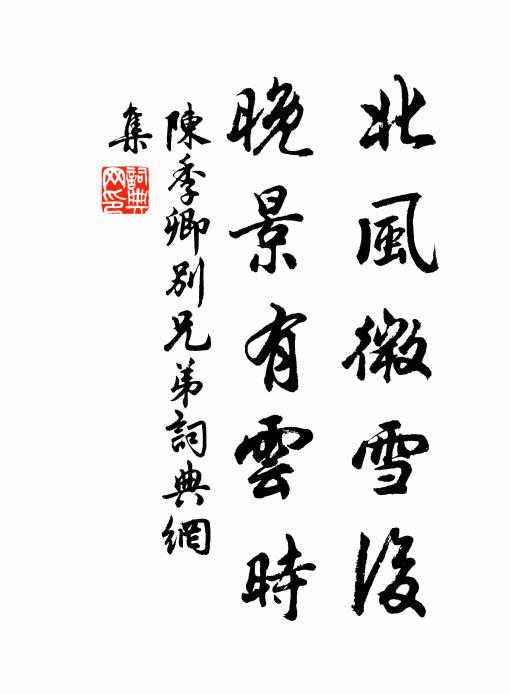 北風微雪後
晚景有雲時
陳季卿別兄弟詞典網
集
詞典網印